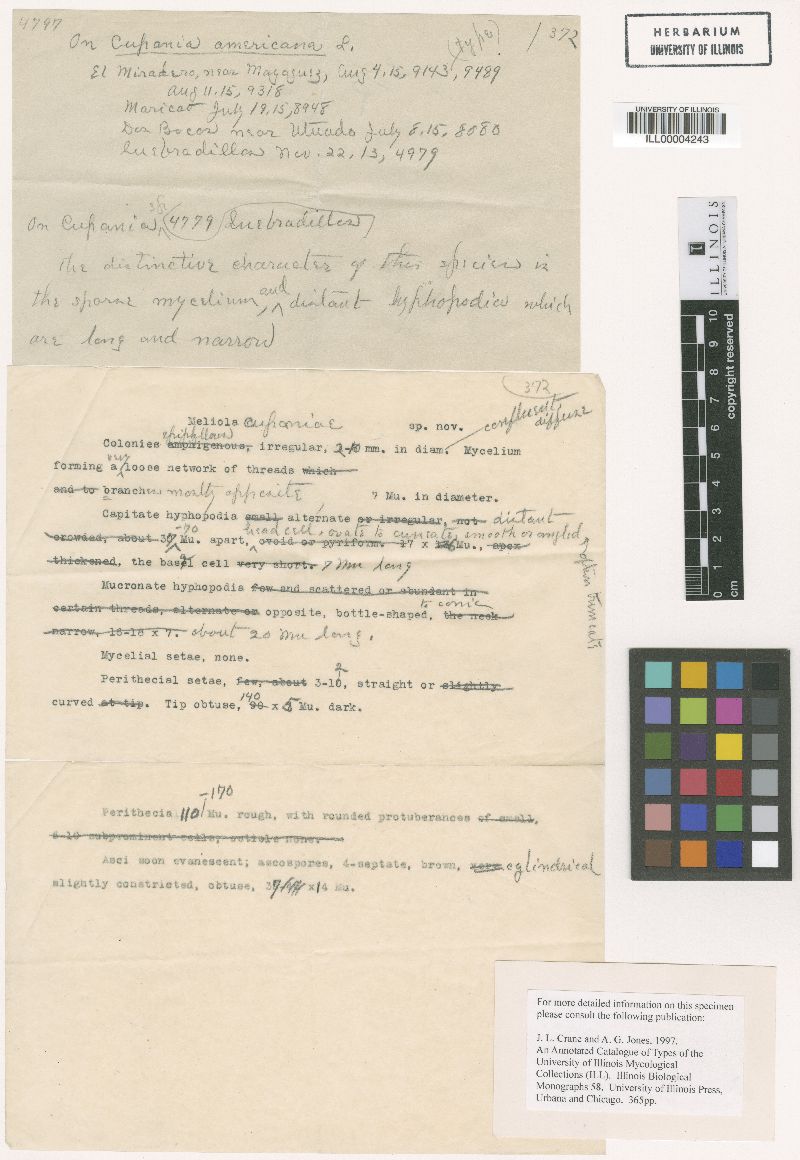 4797
On Cupania americana L. (type?) / 372
El Miradero, near Mayaguez, Aug 4, 15, 9143, 9489
Aug 11.15, 9318
Maricao July 19, 15, 8948
Dos Bocas near Utuado July 8.15, 8080
Quebradillas Nov. 22, 13, 4979
On Cupania, sp. 4779 Quebradillas
The distinctive character of this species is
the sparse mycelium, and distant hyphopodia which
are long and narrow
372
Meliola Cupaniae sp. nov. confluent, diffuse
Colonies amphigenous, epiphyllous irregular, mm. in diam. Mycelium
forming a very loose network of threads which
and to branches mostly opposite 7 Mu. in diameter.
Capitate hyphopodia small alternate or irregular, not distant
crowded, about 30 -70 Mu. apart, head cell, ovate to cuneate, smooth or angled ovoid or pyriform. 17 x Mu., apex often truncate
thickened, the basal cell very short. 7 Mu long
Mucronate hyphopodia few and scattered or abundant in
certain threads, alternate or opposite, bottle-shaped, to conic the neck
narrow, 15-18 x 7. about 20 Mu long.
Mycelial setae, none.
Perithecial setae, few, about 3-10, straight or slightly
curved at tip. Tip obtuse, 140 90 x 5 Mu. dark.
Perithecia 110 -170 Mu. rough, with rounded protuberances of small,
8-10 subprominent cells; ostiole none.
Asci soon evanescent; ascospores, 4-septate, brown, very cylindrical
slightly constricted, obtuse, x 14 Mu.
HERBARIUM
UNIVERSITY OF ILLINOIS
UNIVERSITY OF ILLINOIS
ILL00004243
ILLINOIS
copyright reserved
0 1 2 3 4 5 6 7 8 9 10
cm
For more detailed information on this specimen
please consult the following publication:
J. L. Crane and A. G. Jones. 1997.
An Annotated Catalogue of Types of the
University of Illinois Mycological
Collections (ILL). Illinois Biological
Monographs 58. University of Illinois Press,
Urbana and Chicago. 365pp.